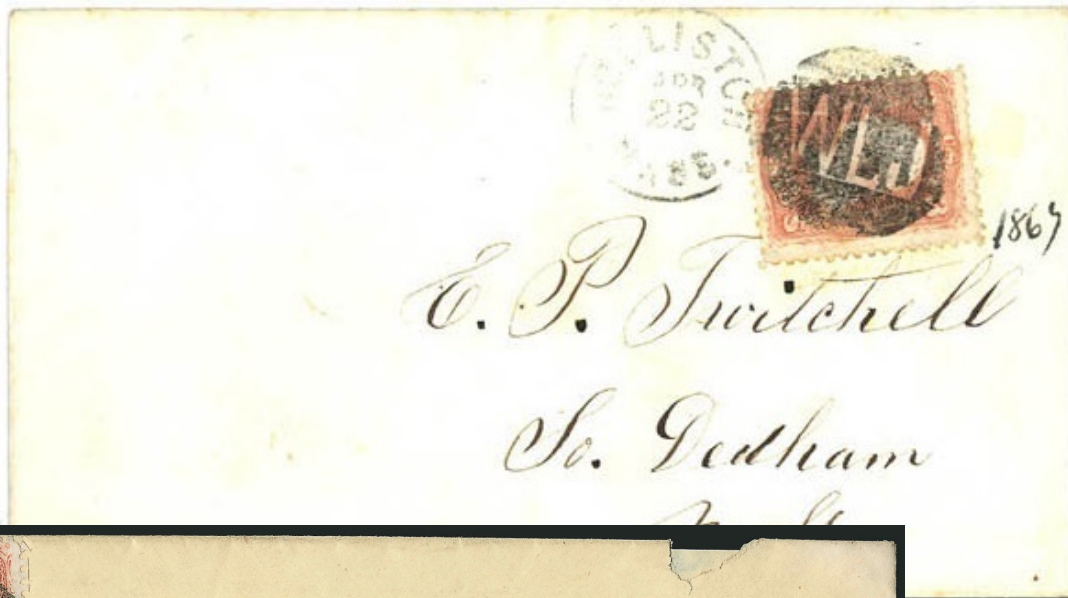 APR
22
WLJ
1867
E. P. Twitchell
So. Dedham